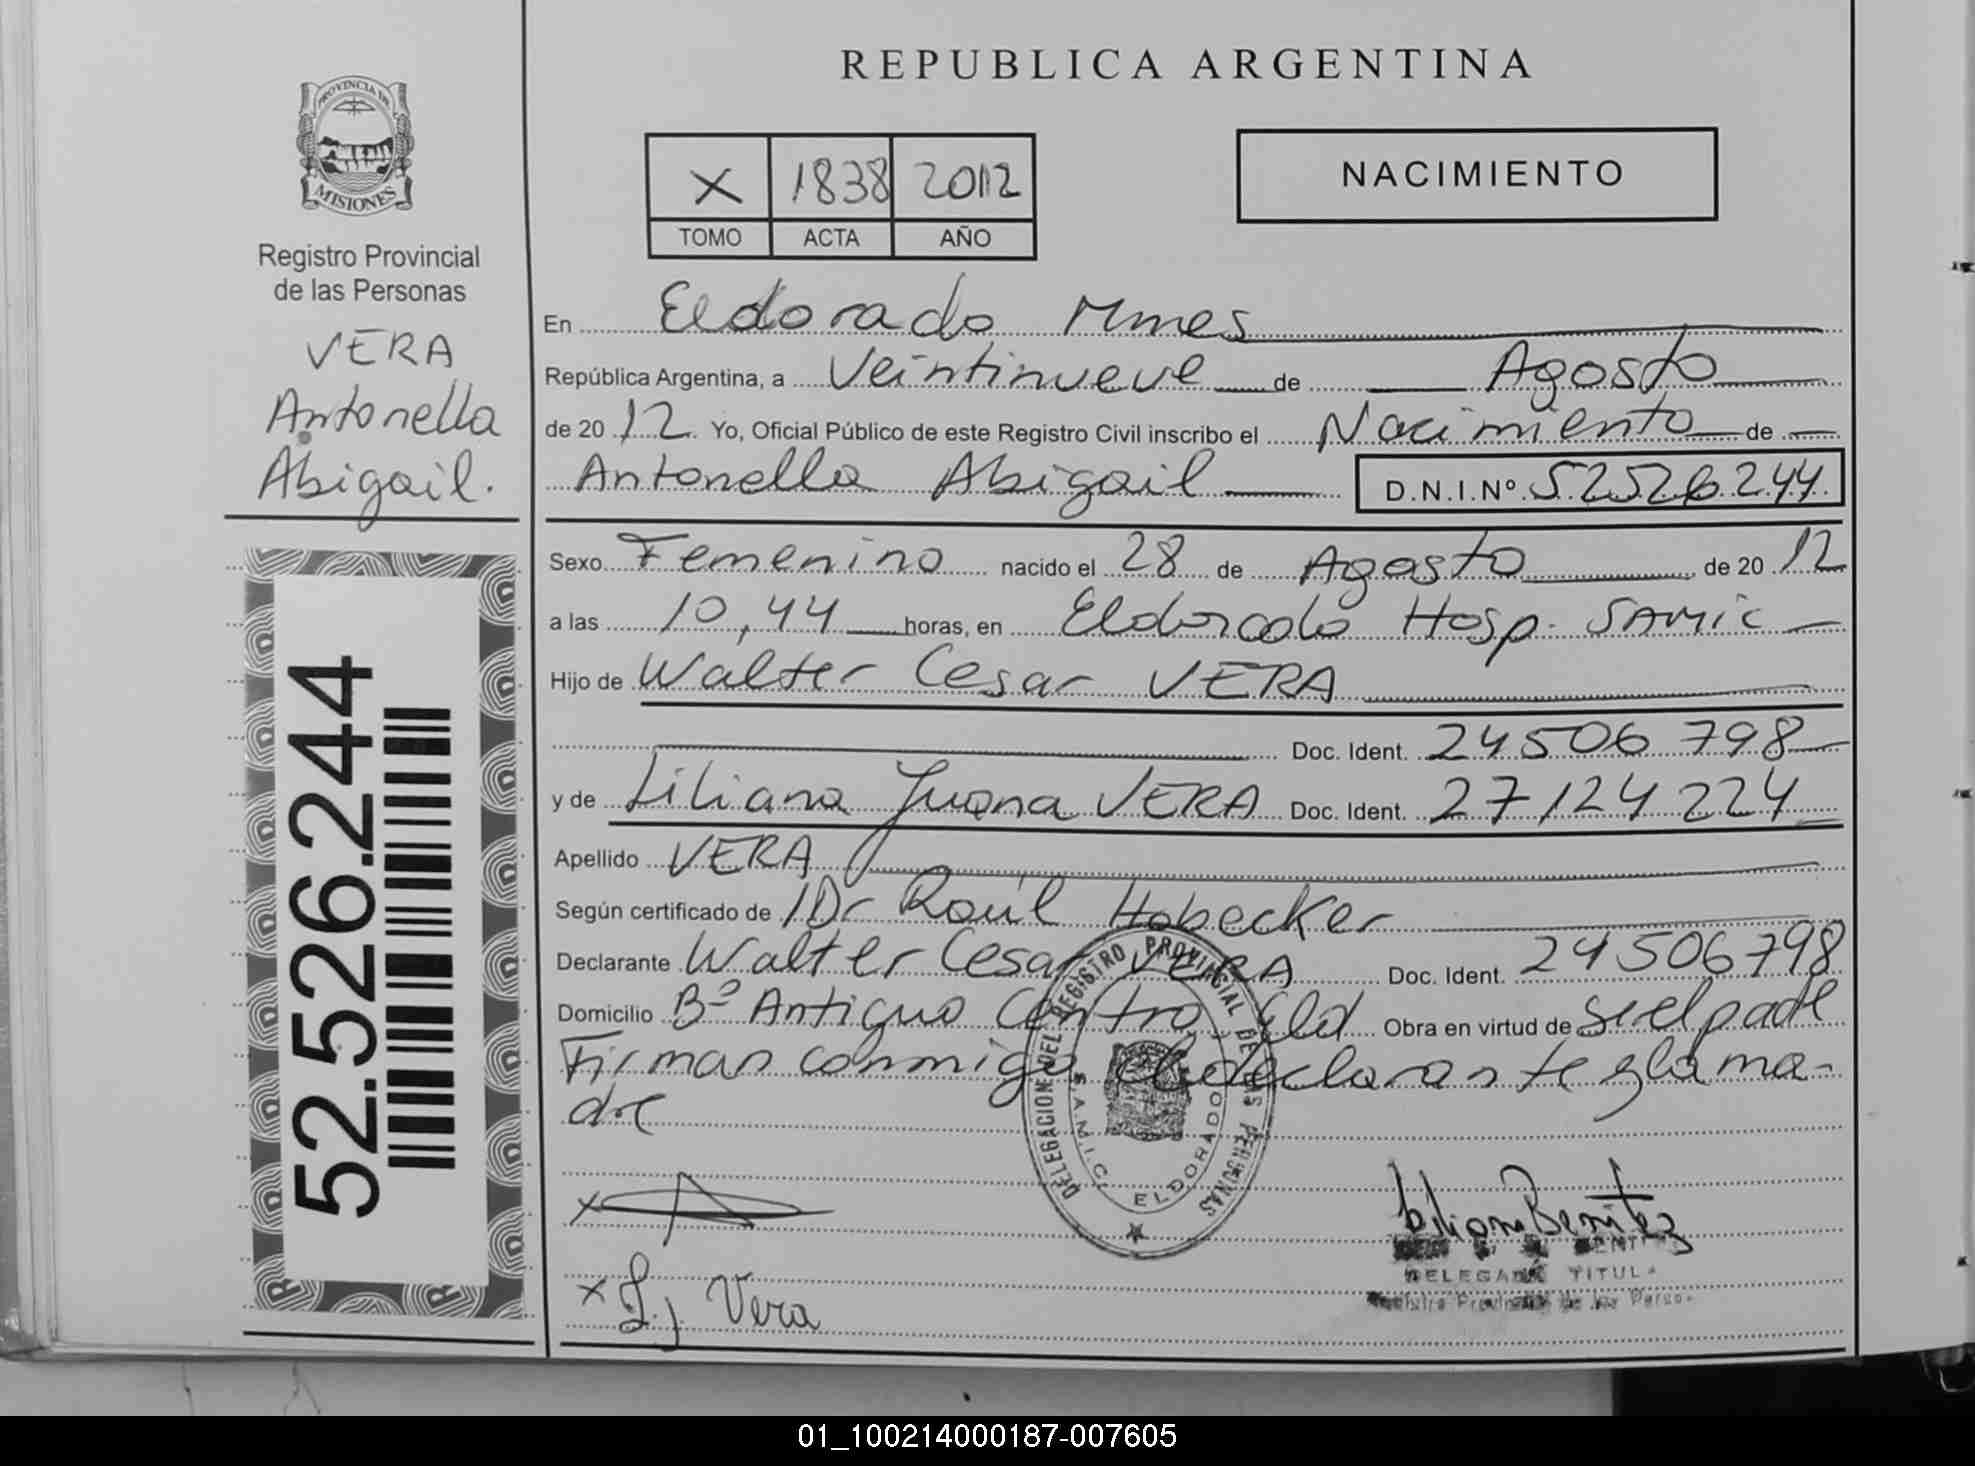 REPUBLICA ARGENTINA
PROVINCIA DE
MISIONES
Registro Provincial
de las Personas
VERA
Antonella
Abigail.
52.526.244
X 1838 2012
TOMO ACTA AÑO
NACIMIENTO
En Eldorado Mnes
República Argentina, a Veintinueve de Agosto
de 20 12 Yo, Oficial Público de este Registro Civil inscribo el Nacimiento de
Antonella Abigail D.N.I.Nº 52526244
Sexo Femenino nacido el 28 de Agosto de 20 12
a las 10,44 horas, en Eldorado Hosp. SAMIC
Hijo de Walter Cesar VERA
Doc. Ident. 24506798
y de Liliana Juana VERA Doc. Ident. 27124224
Apellido VERA
Según certificado de Dr Raúl Hobecker
Declarante Walter Cesar VERA Doc. Ident. 24506798
Domicilio Bº Antiguo Centro, Eld Obra en virtud de ser el padre
Firman conmigo el declarante y la ma-
dre
DELEGACION DEL REGISTRO PROVINCIAL DE LAS PERSONAS
S.A.M.I.C. ELDORADO
X
Benitez
DELEGADA TITULA
Registro Provincial de las Perso
X L.J Vera
01_100214000187-007605